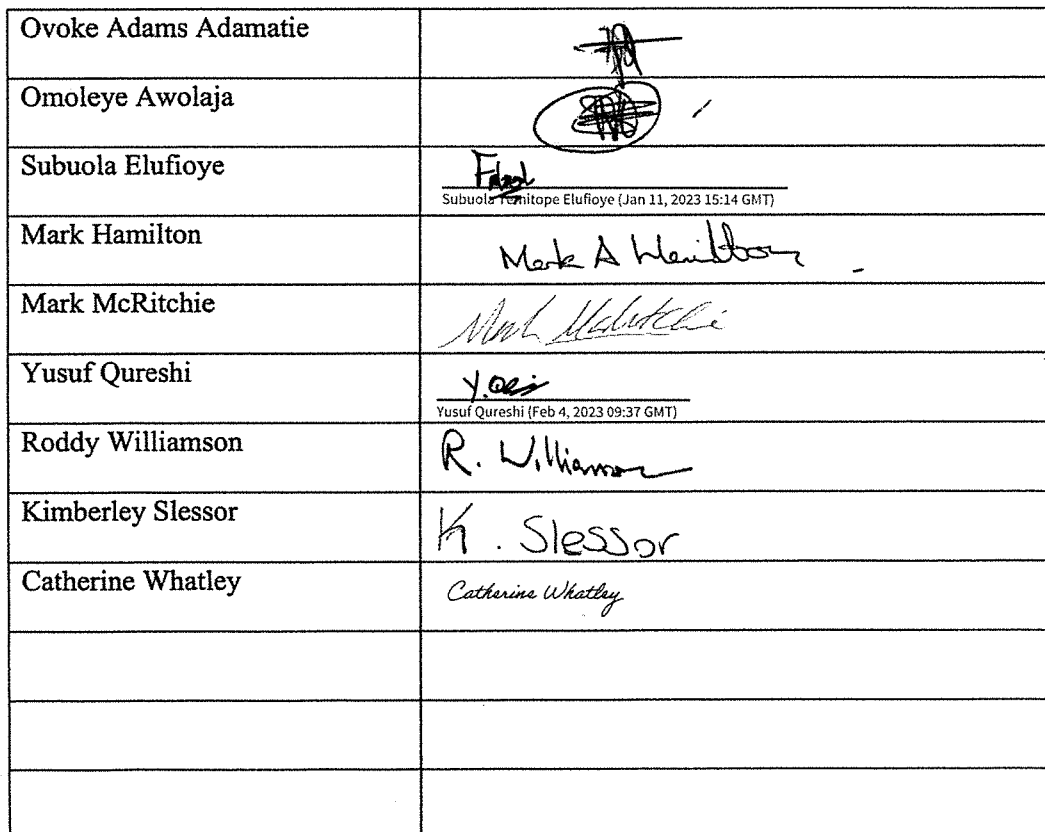 Ovoke Adams Adamatie
Omoleye Awolaja
Subuola Elufioye
Subuola Temitope Elufioye (Jan 11, 2023 15:14 GMT)
Mark Hamilton
Mark A Hamilton
Mark McRitchie
Mark McRitchie
Yusuf Qureshi
Yusuf Qureshi (Feb 4, 2023 09:37 GMT)
Roddy Williamson
R. Williamson
Kimberley Slessor
K. Slessor
Catherine Whatley
Catherine Whatley